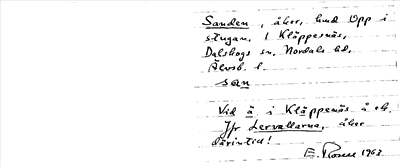 Sanden, åker, hud Opp i
stugan, i Kläppenäs,
Dalskogs sn. Nordals hd.
Älvsb. l.
san
Vid ä i Kläppenäs å ek.
Jfr Lervallarna, åker
därintill!
E. Rosell 1963